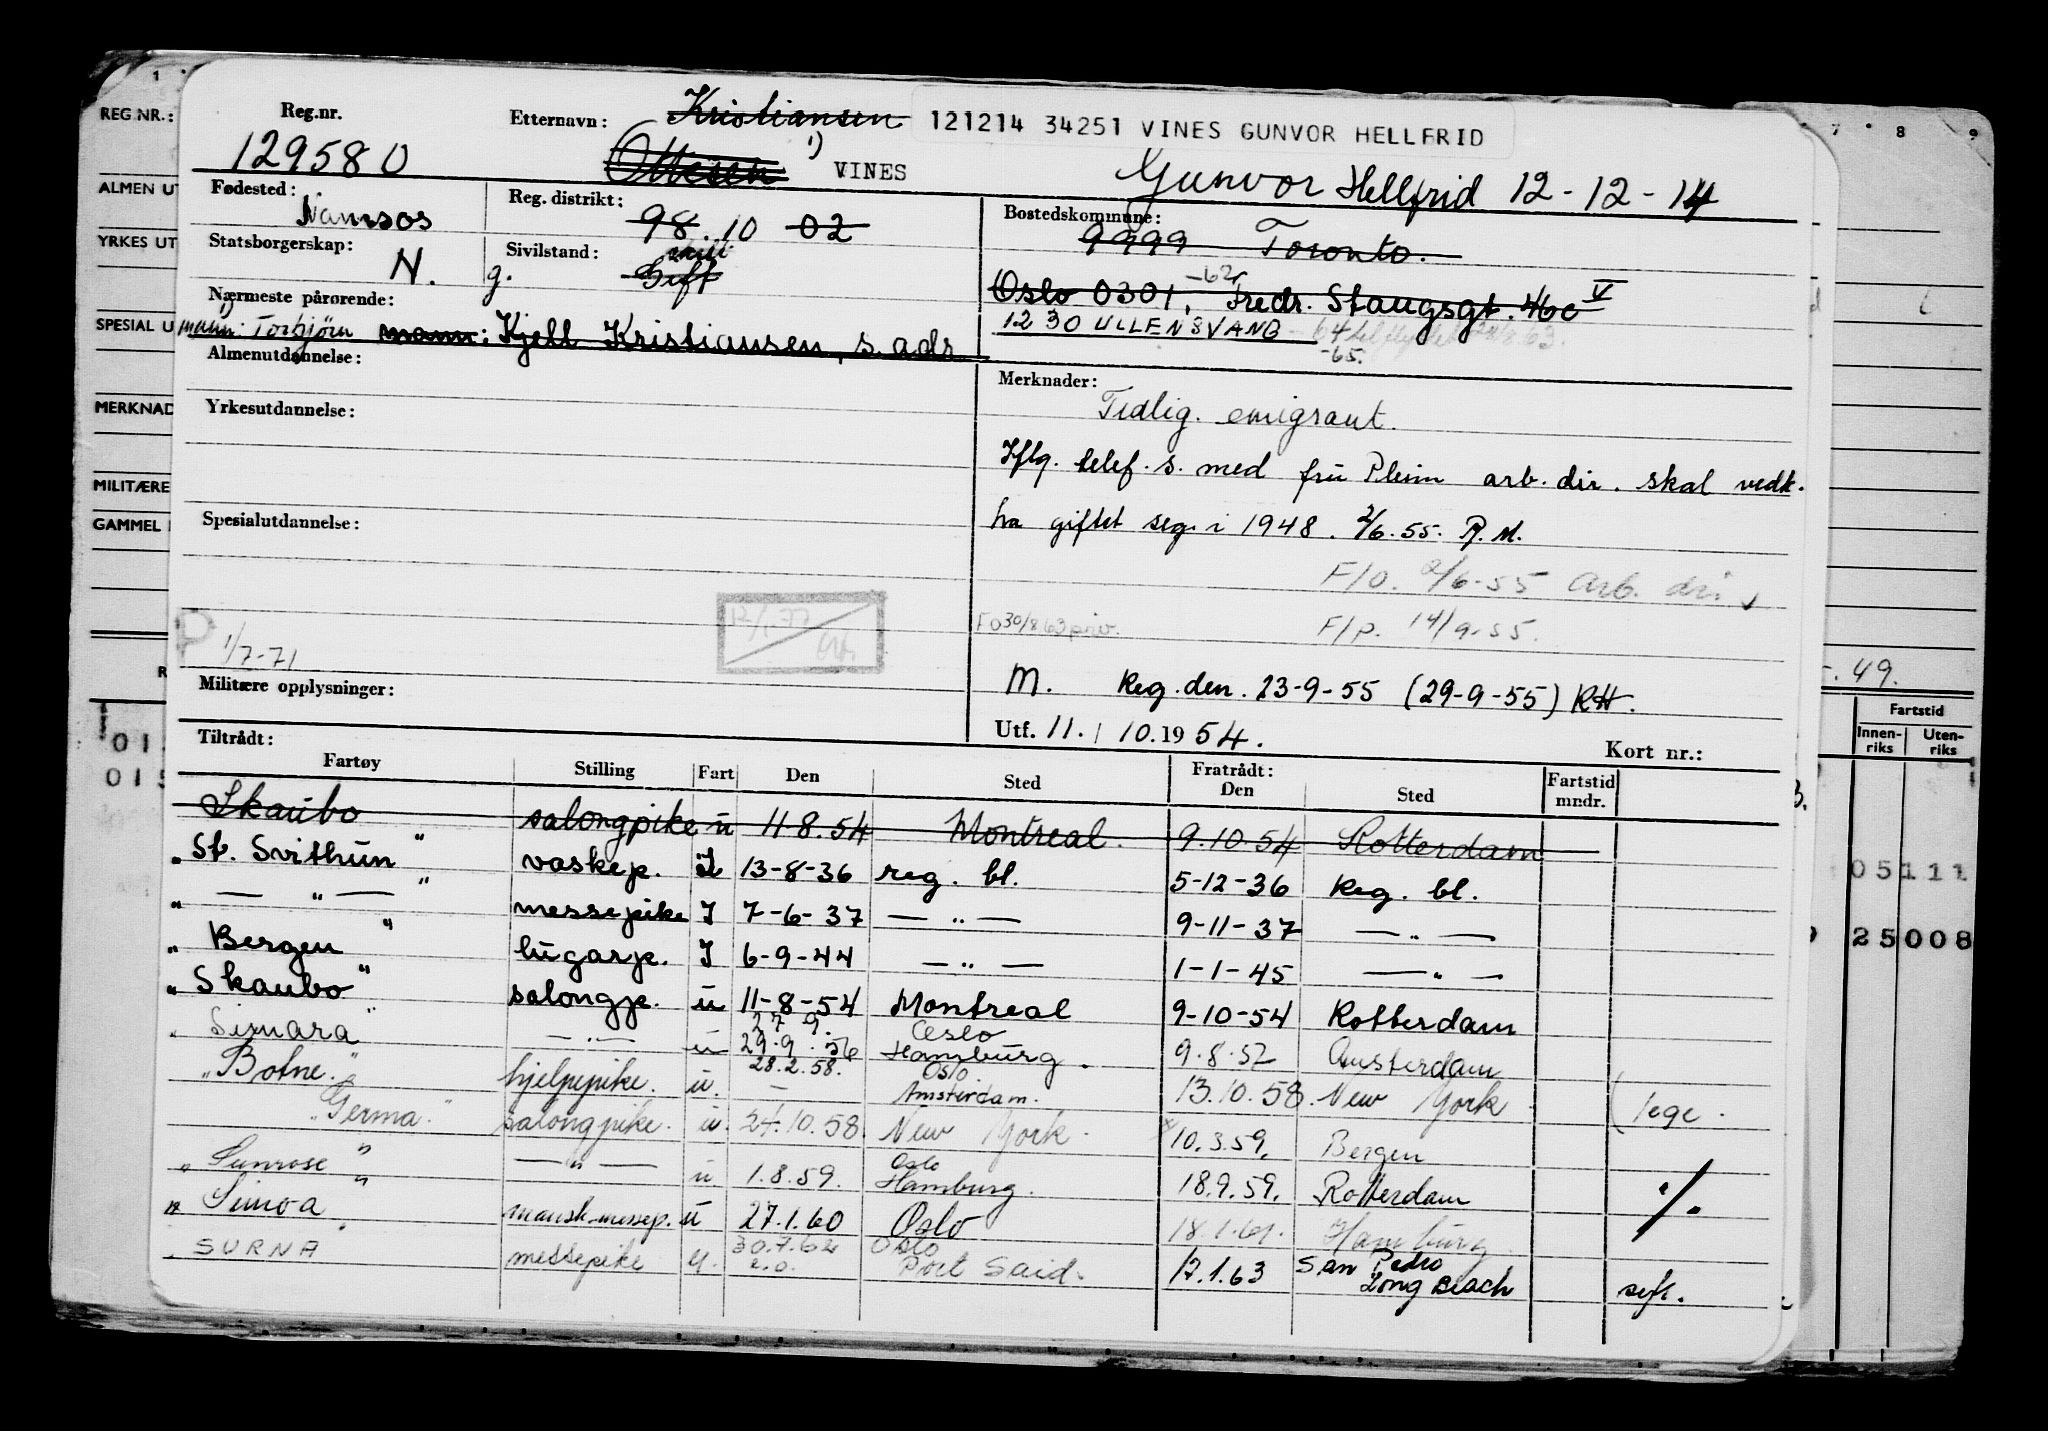 Reg.nr. Etternavn: Kristiansen 121214 34251 VINES GUNVOR HELLFRID
129580 Ottesen 1) VINES Gunvor Hellfrid 12-12-14
Fødested: Namsos Reg. distrikt: 98.10 02 Bostedskommune: 9999 Toronto.
Statsborgerskap: N. g. Sivilstand: skilt Gift Oslo 0301, -62 Fredr. Stangsgt. 46c V
Nærmeste pårørende: 1230 ULLENSVANG -64
1) mann: Torbjørn mann: Kjell Kristiansen, s. adr. -65.
Almenutdannelse: Merknader:
Tidlig. emigrant.
Yrkesutdannelse:
Iflg. telef. s. med fru Pleim arb. dir. skal vedk.
Spesialutdannelse: ha giftet seg i 1948. 2/6.55. R.M.
F/O. 2/6-55 arb. dir.
F O 30/8 63 priv. F/p. 14/9-55.
P 1/7-71
M. Reg. den. 23-9-55 (29-9-55) RH.
Militære opplysninger:
Utf. 11. / 10. 1954. Kort nr.:
Tiltrådt: Fratrådt:
Fartøy Stilling Fart Den Sted Den Sted Fartstid mndr.
Skaubo salongpike u 11.8.54 Montreal. 9.10.54 Rotterdam
"St. Svithun" vaskep. I 13-8-36 reg. bl. 5-12-36 Reg. bl.
" — " — " messepike I 7-6-37 — " — 9-11-37 — " —
"Bergen" lugarp. I 6-9-44 — " — 1-1-45 — " —
"Skaubo" salongp. u 11-8-54 Montreal 9-10-54 Rotterdam
"Simara" — " — u 27 9. 29.9.56 Oslo Hamburg. 9.8.57 Amsterdam
"Botne." hjelpepike. u. 28.2.58. — Oslo Amsterdam. 13.10.58. New York (lege.
"Germa." salongpike. u 24.10.58 New York. x 10.3.59. Bergen
"Sunrose" — " — u 1.8.59. Oslo Hamburg. 18.9.59. Rotterdam ./.
"Simoa" mansk.messep. u 27.1.60 Oslo 18.1.61. Hamburg.
"SURNA messepike u. 30.7.62 e.o. Oslo Port Said. 17.1.63 San Pedro Long Beach syk.
REG.NR.:
ALMEN UT
YRKES UT
SPESIAL U
MERKNAD
MILITÆRE
GAMMEL
1 7 8 9
-.49.
Fartstid
Innen-riks Uten-riks
05111
25008